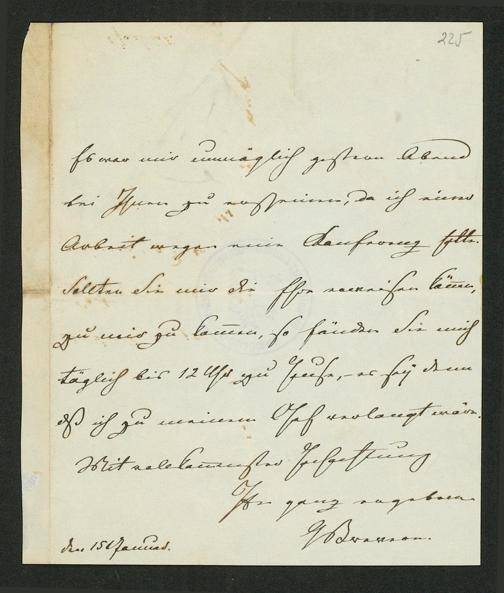 225
Es war mir unmöglich gestern Abend
bei Ihnen zu erscheinen, da ich einer
Arbeit wegen eine Conferenz hatte.
Sollten Sie mir die Ehre erweisen können,
zu mir zu kommen, so fänden Sie mich
täglich bis 12 Uhr zu Hause, – es sey denn
daß ich zu meinem Chef verlangt wäre.
Mit vollkommenster Hochachtung
Ihr ganz ergebener
den 15 Januar.